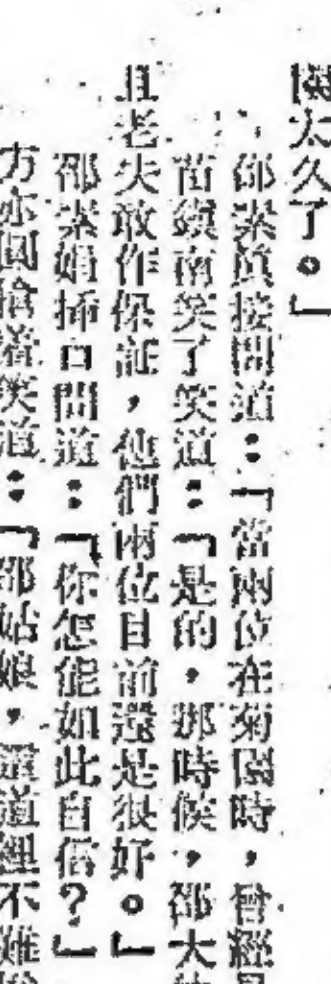 太久了。」
邵素眞接問道：「當兩位在菊園時，曾經
苗嶺南笑了笑道：「是的，那時候，邵大
且老夫敢作保証，他們兩位目前還是很好。」
邵素娟插口問道：「你怎能如此自信？」
方亦圓搶着笑道：「邵姑娘，這道理不難